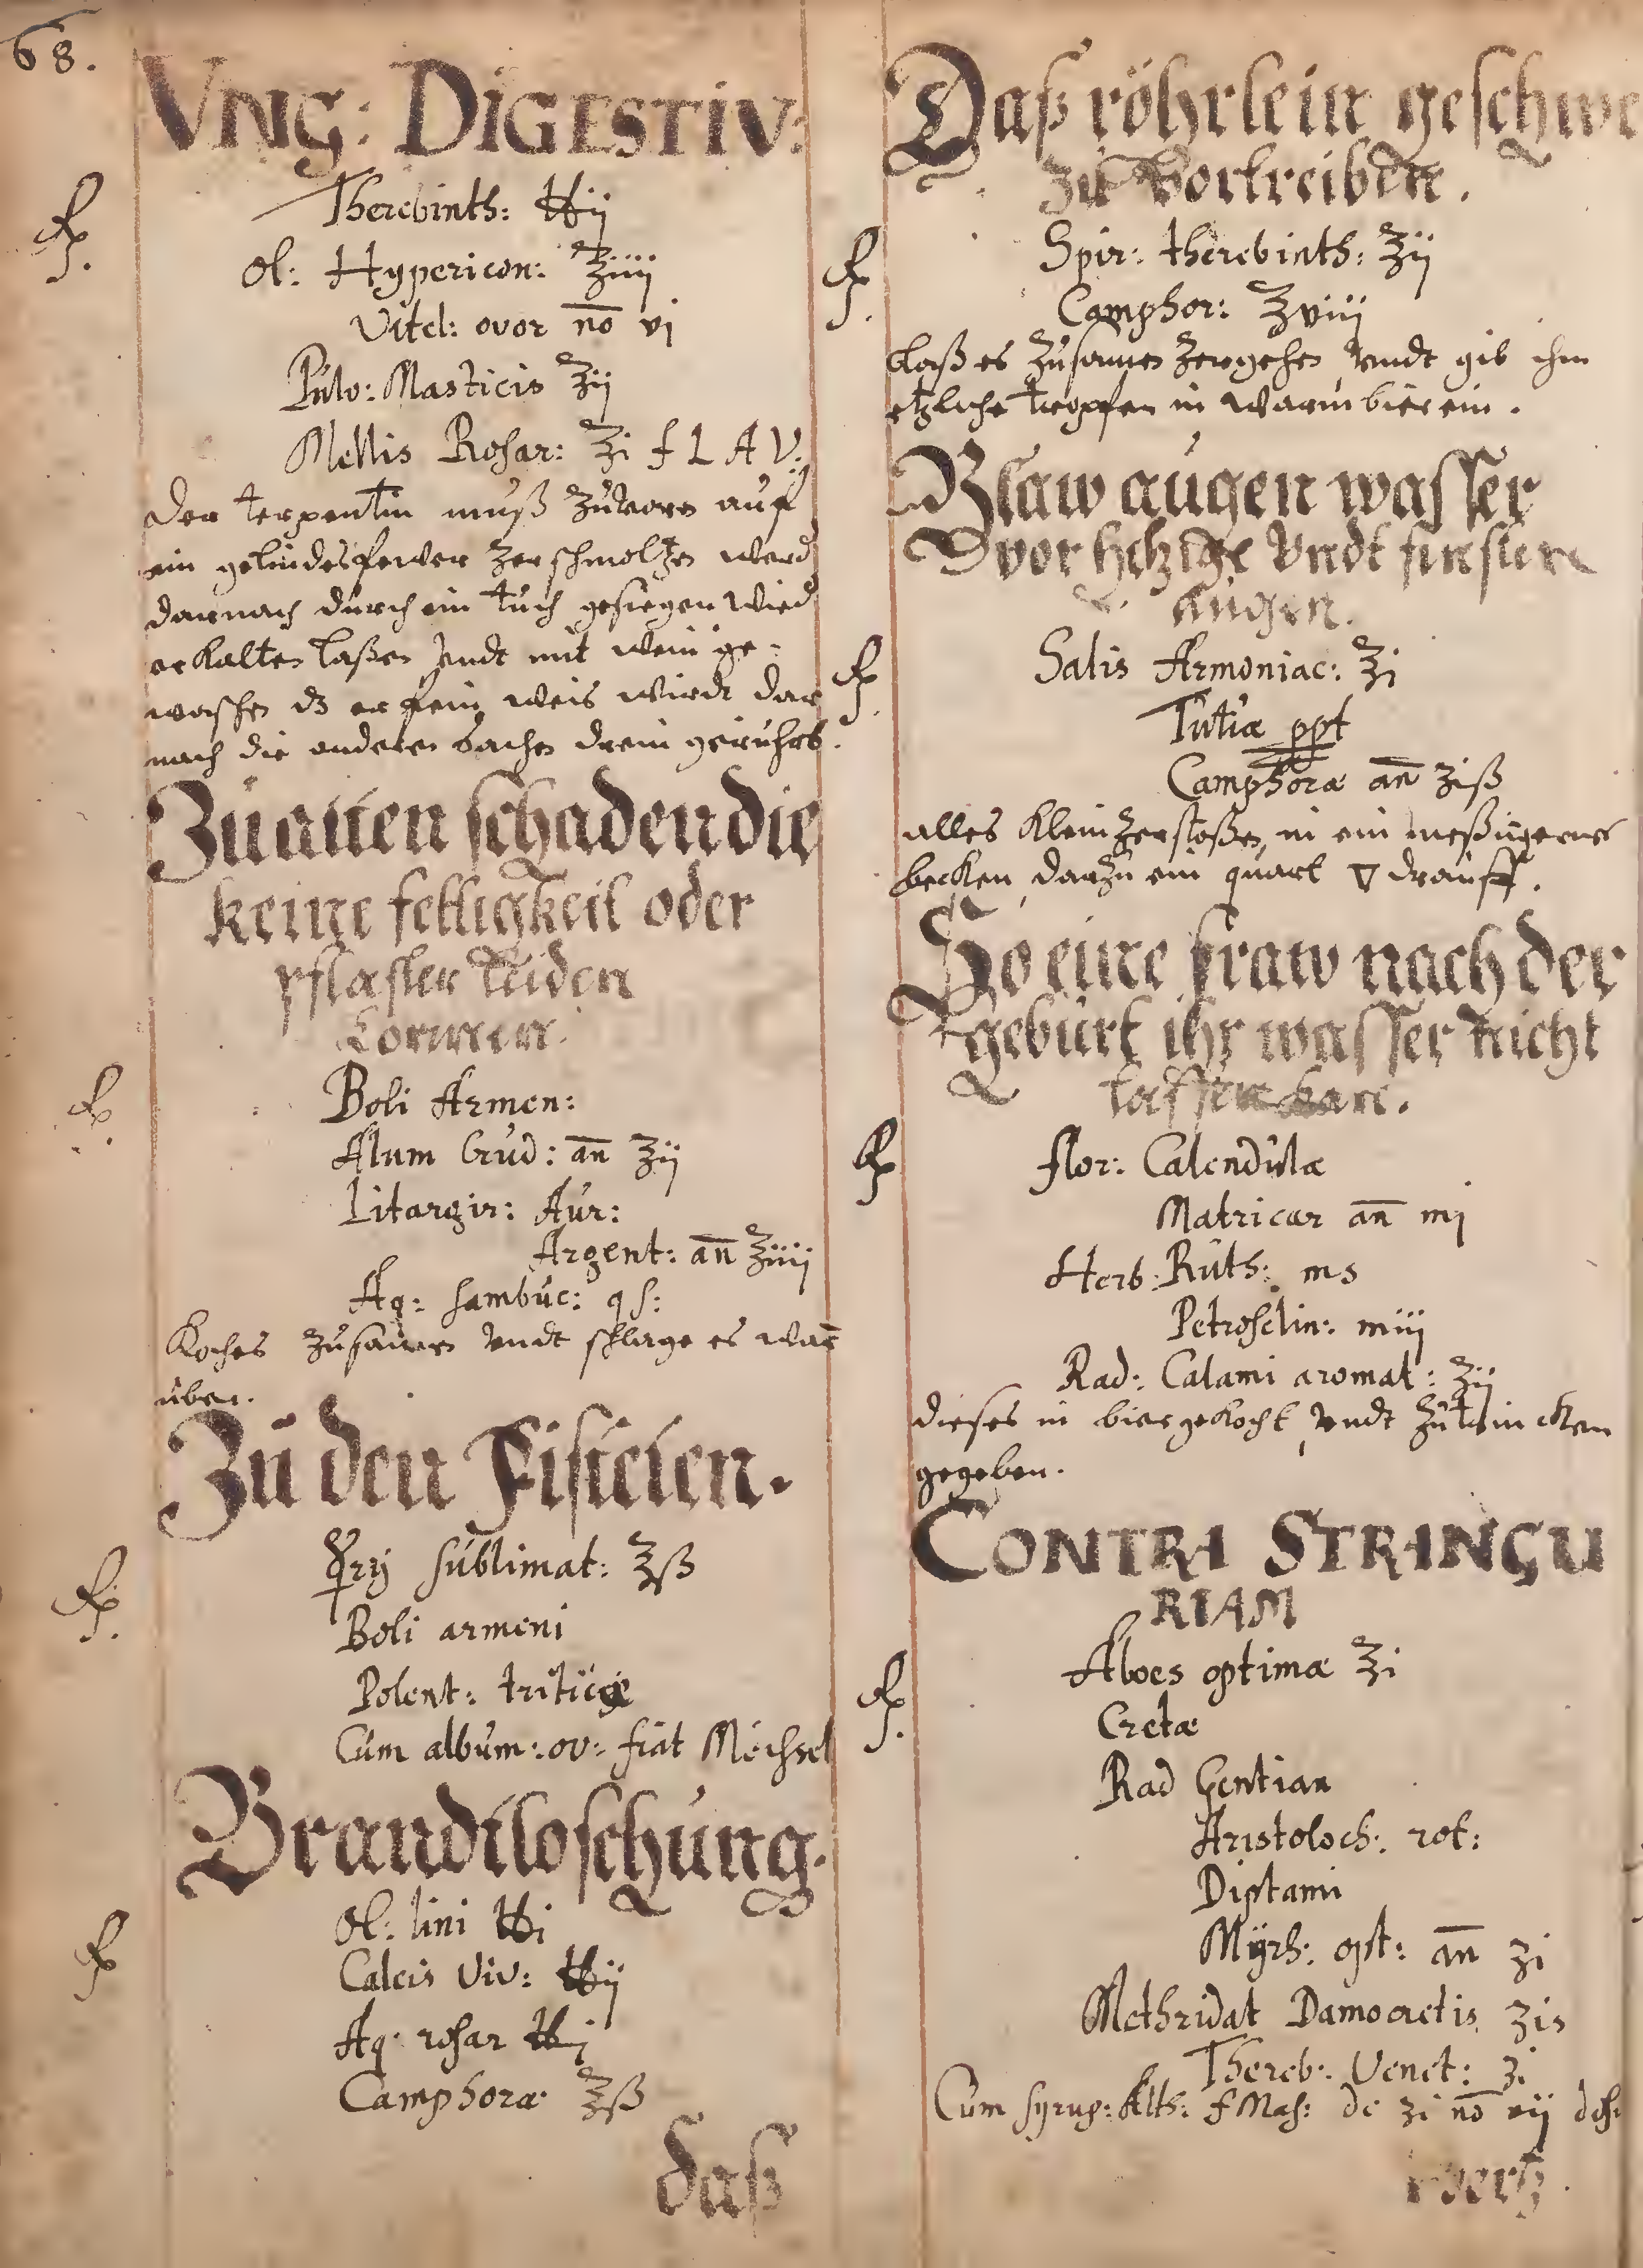 68.
VNG: DIGESTIV:
Rp.
Therebinth: ℔ij
Ol: Hypericon: ℥iiij
Vitel: ovor nō vj
Pulv: Masticis ℥ij
Mellis Rosar: ℥i f L A V:
Der terpentin muß zuvorn auf
ein gelindes fewer zerschmoltzen werd
darnach durch ein tuch gesiegen wied
erkalten laßen undt mit wein ge-
waschen dz er fein weis wirdt dar
nach die anderen sachen drein gerührt.
Zu allen schaden die
keine fettigkeit oder
pflaster leiden
konnen.
Rp.
Boli Armen:
Alum Crud: an̄ ʒij
Litargir: Aur:
Argent: an̄ ℥iiij
Aq: sambuc: q s:
Koches zusamen undt schlage es war
uber.
Zu den Fistelen.
Rp.
☿rij sublimat: ℥ß
Boli armeni
Polent: triticae
Cum album: ov: fiat Meichsel
Brandtloschung.
Rp
Ol: lini ℔i
Calcis viv: ℔ij
Aq: rosar ℔j
Camphorae ℥ß
daß
Daß röhrlein geschwe
zu vortreiben.
Rp.
Spir: therebinth: ℥ij
Camphor: ℥viij
laß es zusamen zergehen undt gib ihm
etzliche tropfen in warm bier ein.
Blaw augen wasser
vor hitzige undt finstere
augen.
Rp.
Salis Armoniac: ℥i
Tutiae ppt
Camphorae an̄ ʒiß
alles klein zerstoßen, in ein meßingernes
becken, darzu ein quart ▽ drauff.
So eine fraw nach der
geburt ihr wasser nicht
lassen kan.
Rp
flor: Calendulae
Matricar an̄ mj
Herb: Ruth: ms
Petroselin: miij
Rad: Calami aromat: ʒij
dieses in bier gekocht, undt zu trincken
gegeben.
CONTRA STRANGU
RIAM
Rp.
Aloes optimae ℥i
Cretae
Rad Gentian
Aristoloch: rot:
Diptami
Myrh: opt: an̄ ʒi
Methridat Damocretis ʒis
Thereb: Venet: ʒi
Cum syrup: Alth: f Mas: de ʒi nō vij